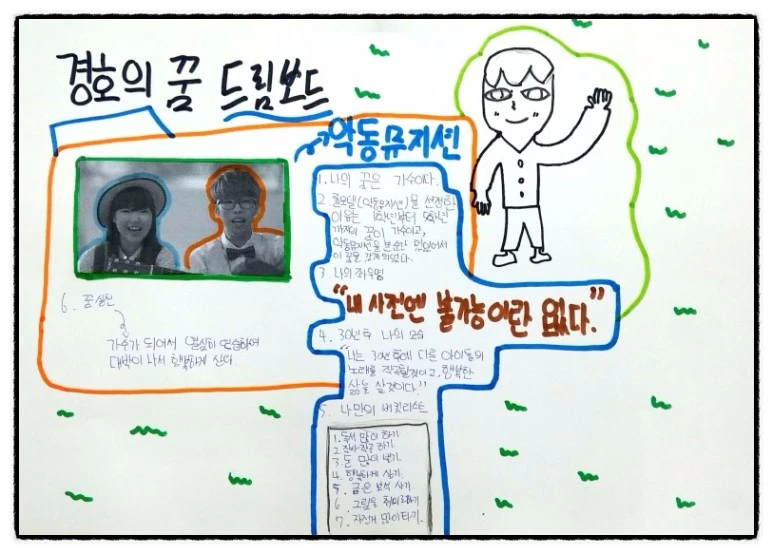 경호의 꿈 드림보드
악동뮤지션
1. 나의 꿈은 가수이다.
2 롤모델(악동뮤지션)을 선정한
이유는 1학년부터 5학년
까지의 꿈이 가수이고,
악동뮤지션을 본순간 멋있어서
이 꿈을 갖게되었다.
3 나의 좌우명
"내 사전엔 불가능이란 없다."
4. 30년후 나의 모습
"나는 30년 후에 다른 아이돌의
노래를 작곡할것이고, 행복한
삶을 살것이다."
5. 나만의 버킷리스트
1. 독서 많이 하기
2. 작곡 하기
3. 돈 많이 벌기
4. 행복하게 살기
5. 금은 보석 사기
6 그림을 취미로하기
7. 자전거 많이타기.
6. 꿈실천
가수가 되어서 열심히 연습하여
대박이 나서 행복하게 산다